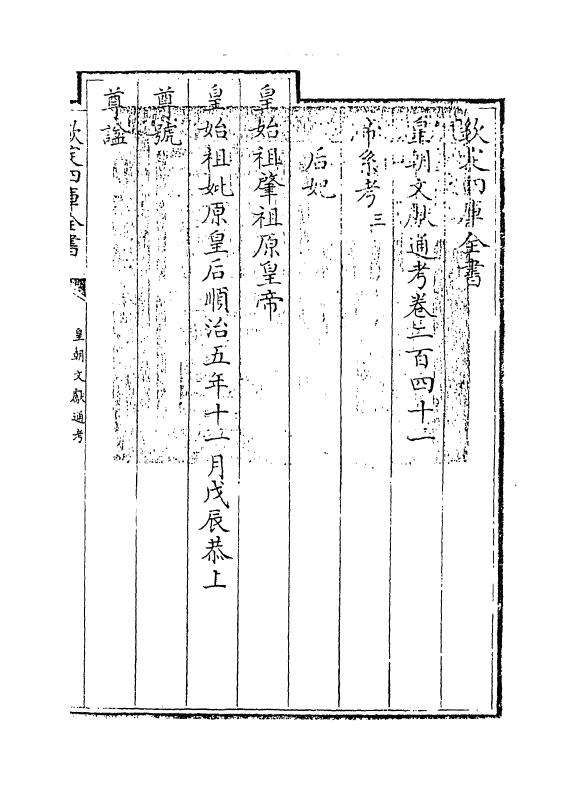 欽定四庫全書
皇朝文獻通考卷二百四十一
帝系考三
后妃
皇始祖肇祖原皇帝
皇始祖妣原皇后順治五年十一月戊辰恭上
尊號
尊諡
欽定四庫全書
皇朝文獻通考